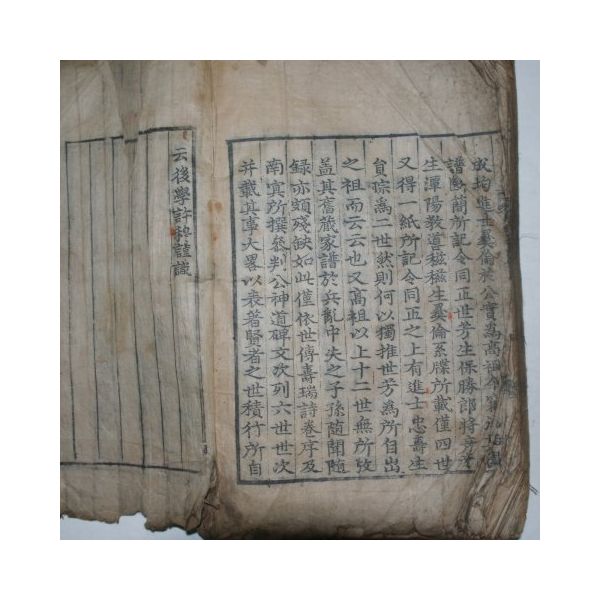 成均進士彛倫於公實爲高祖
譜斷簡所記令同正世芳生保勝郎將
生潭陽敎導 生彛倫系牒所載僅四世
又得一紙所記令同正之上有進士忠壽生
貟琮爲二世然則何以獨推世芳爲所自出
之祖而云云也又高祖以上十二世無所攷
盖其舊蔵家譜於兵亂中失之子孫隨聞隨
録亦頗殘缺如此僅依世傳壽瑞詩卷序及
南冥所撰叅判公神道碑文次列六世世次
并載其事大畧以表著賢者之世積行所自
云後學許 謹識